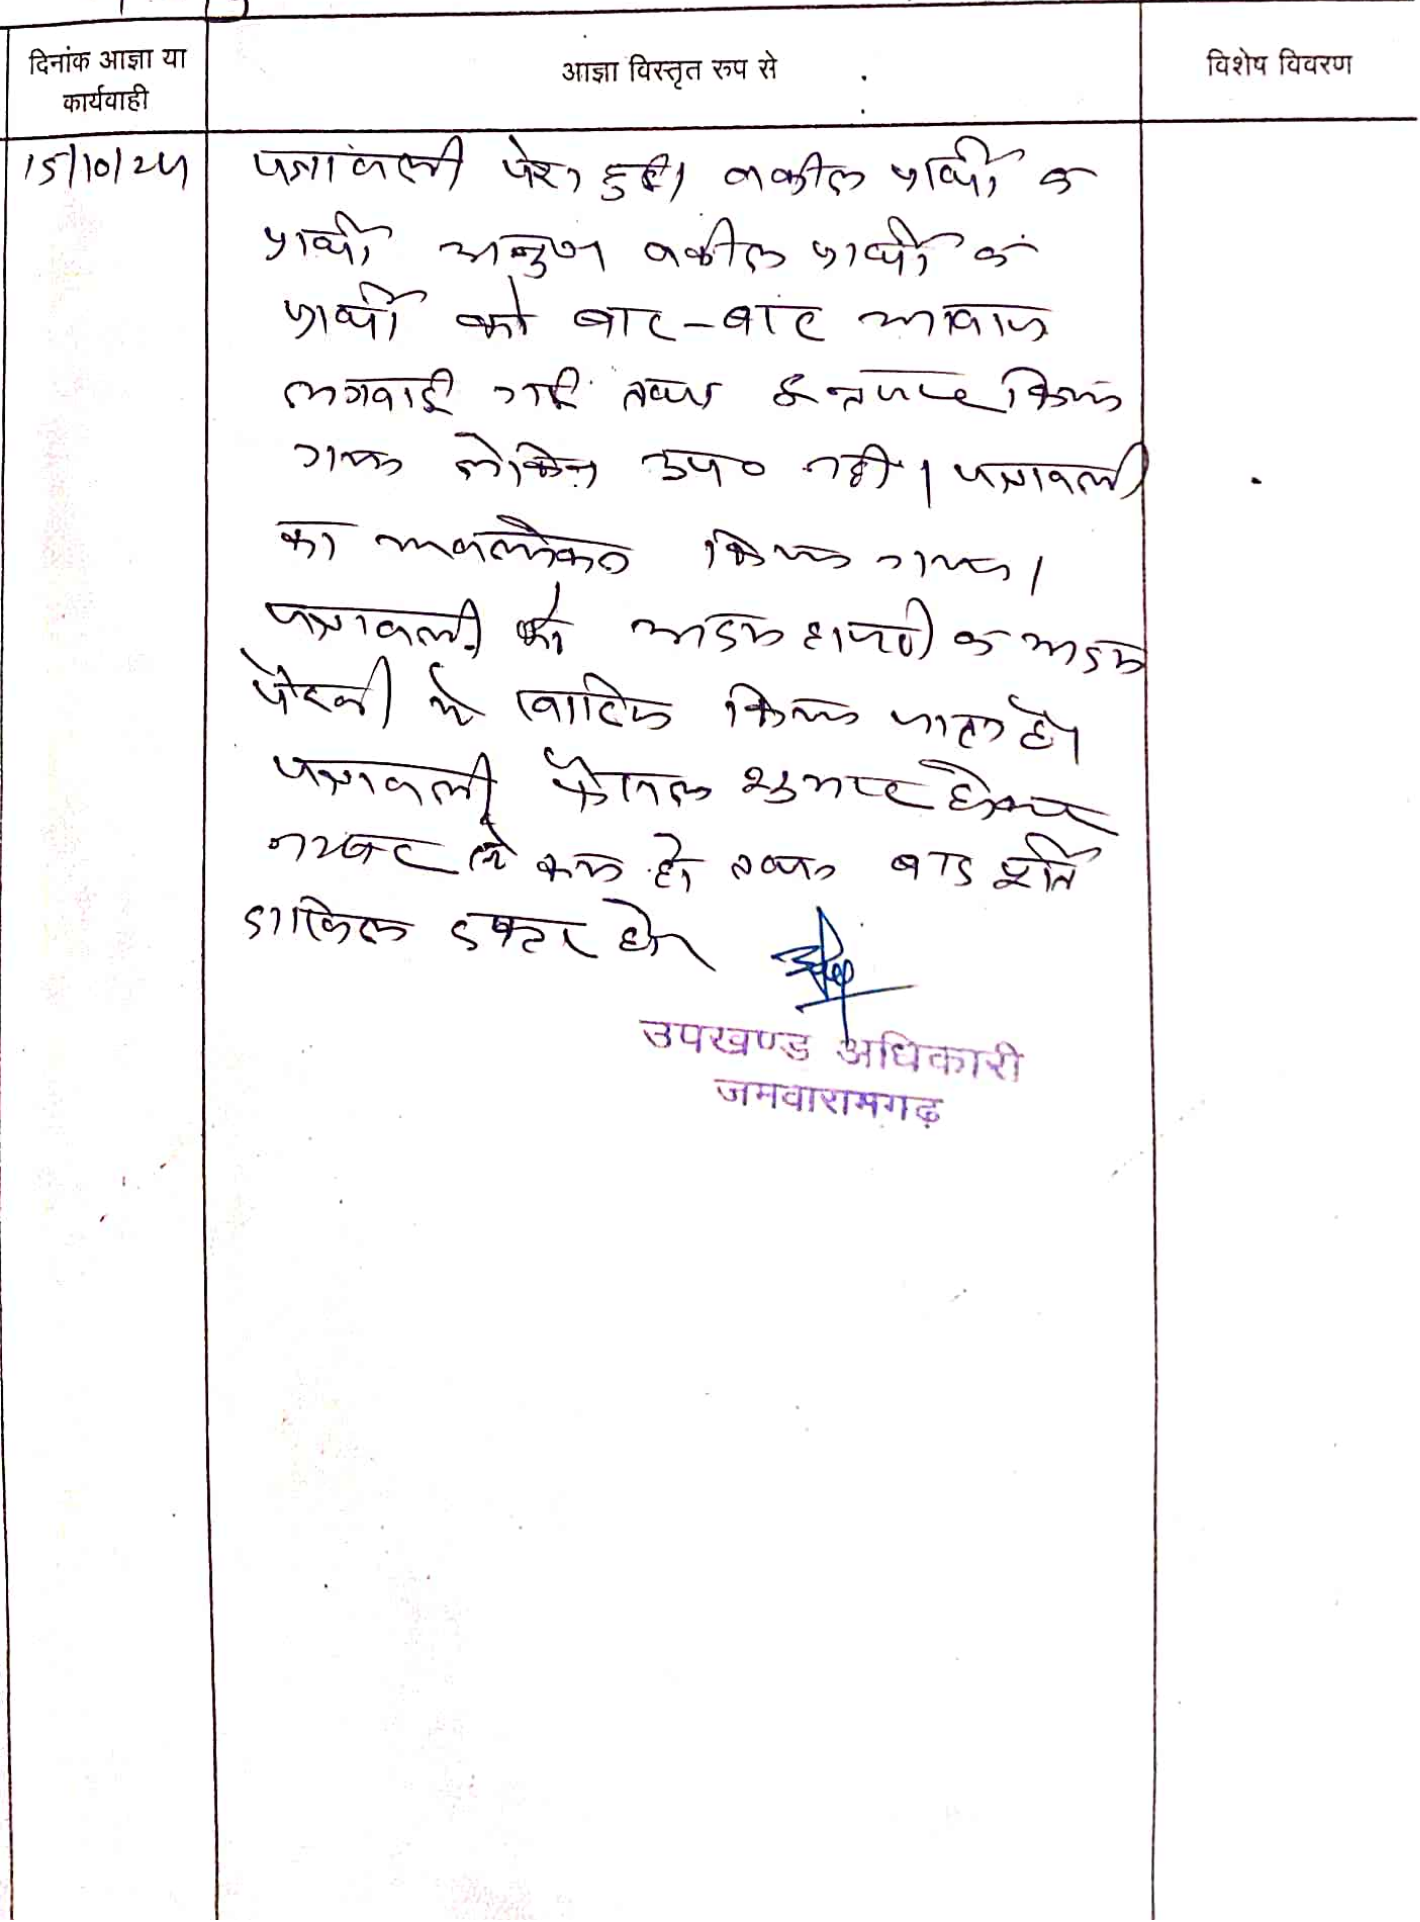 दिनांक आज्ञा या
कार्यवाही
आज्ञा विस्तृत रुप से
विशेष विवरण
15/10/24
पत्रावली पेश हुई। वकील प्रार्थी व
प्रार्थी अनु० वकील प्रार्थी व
प्रार्थी को बार-बार आवाज
लगवाई गई तथा इन्तजार किया
गया लेकिन उप० नही। पत्रावली
का अवलोकन किया गया।
पत्रावली को अदम हाजरी व अदम
पैरवी मे खारिज किया जाता है।
पत्रावली फैसल शुमार होकर
नम्बर से कम हो तथा बाद पूर्ति
दाखिल दफ्तर हो।
उपखण्ड अधिकारी
जमवारामगढ़